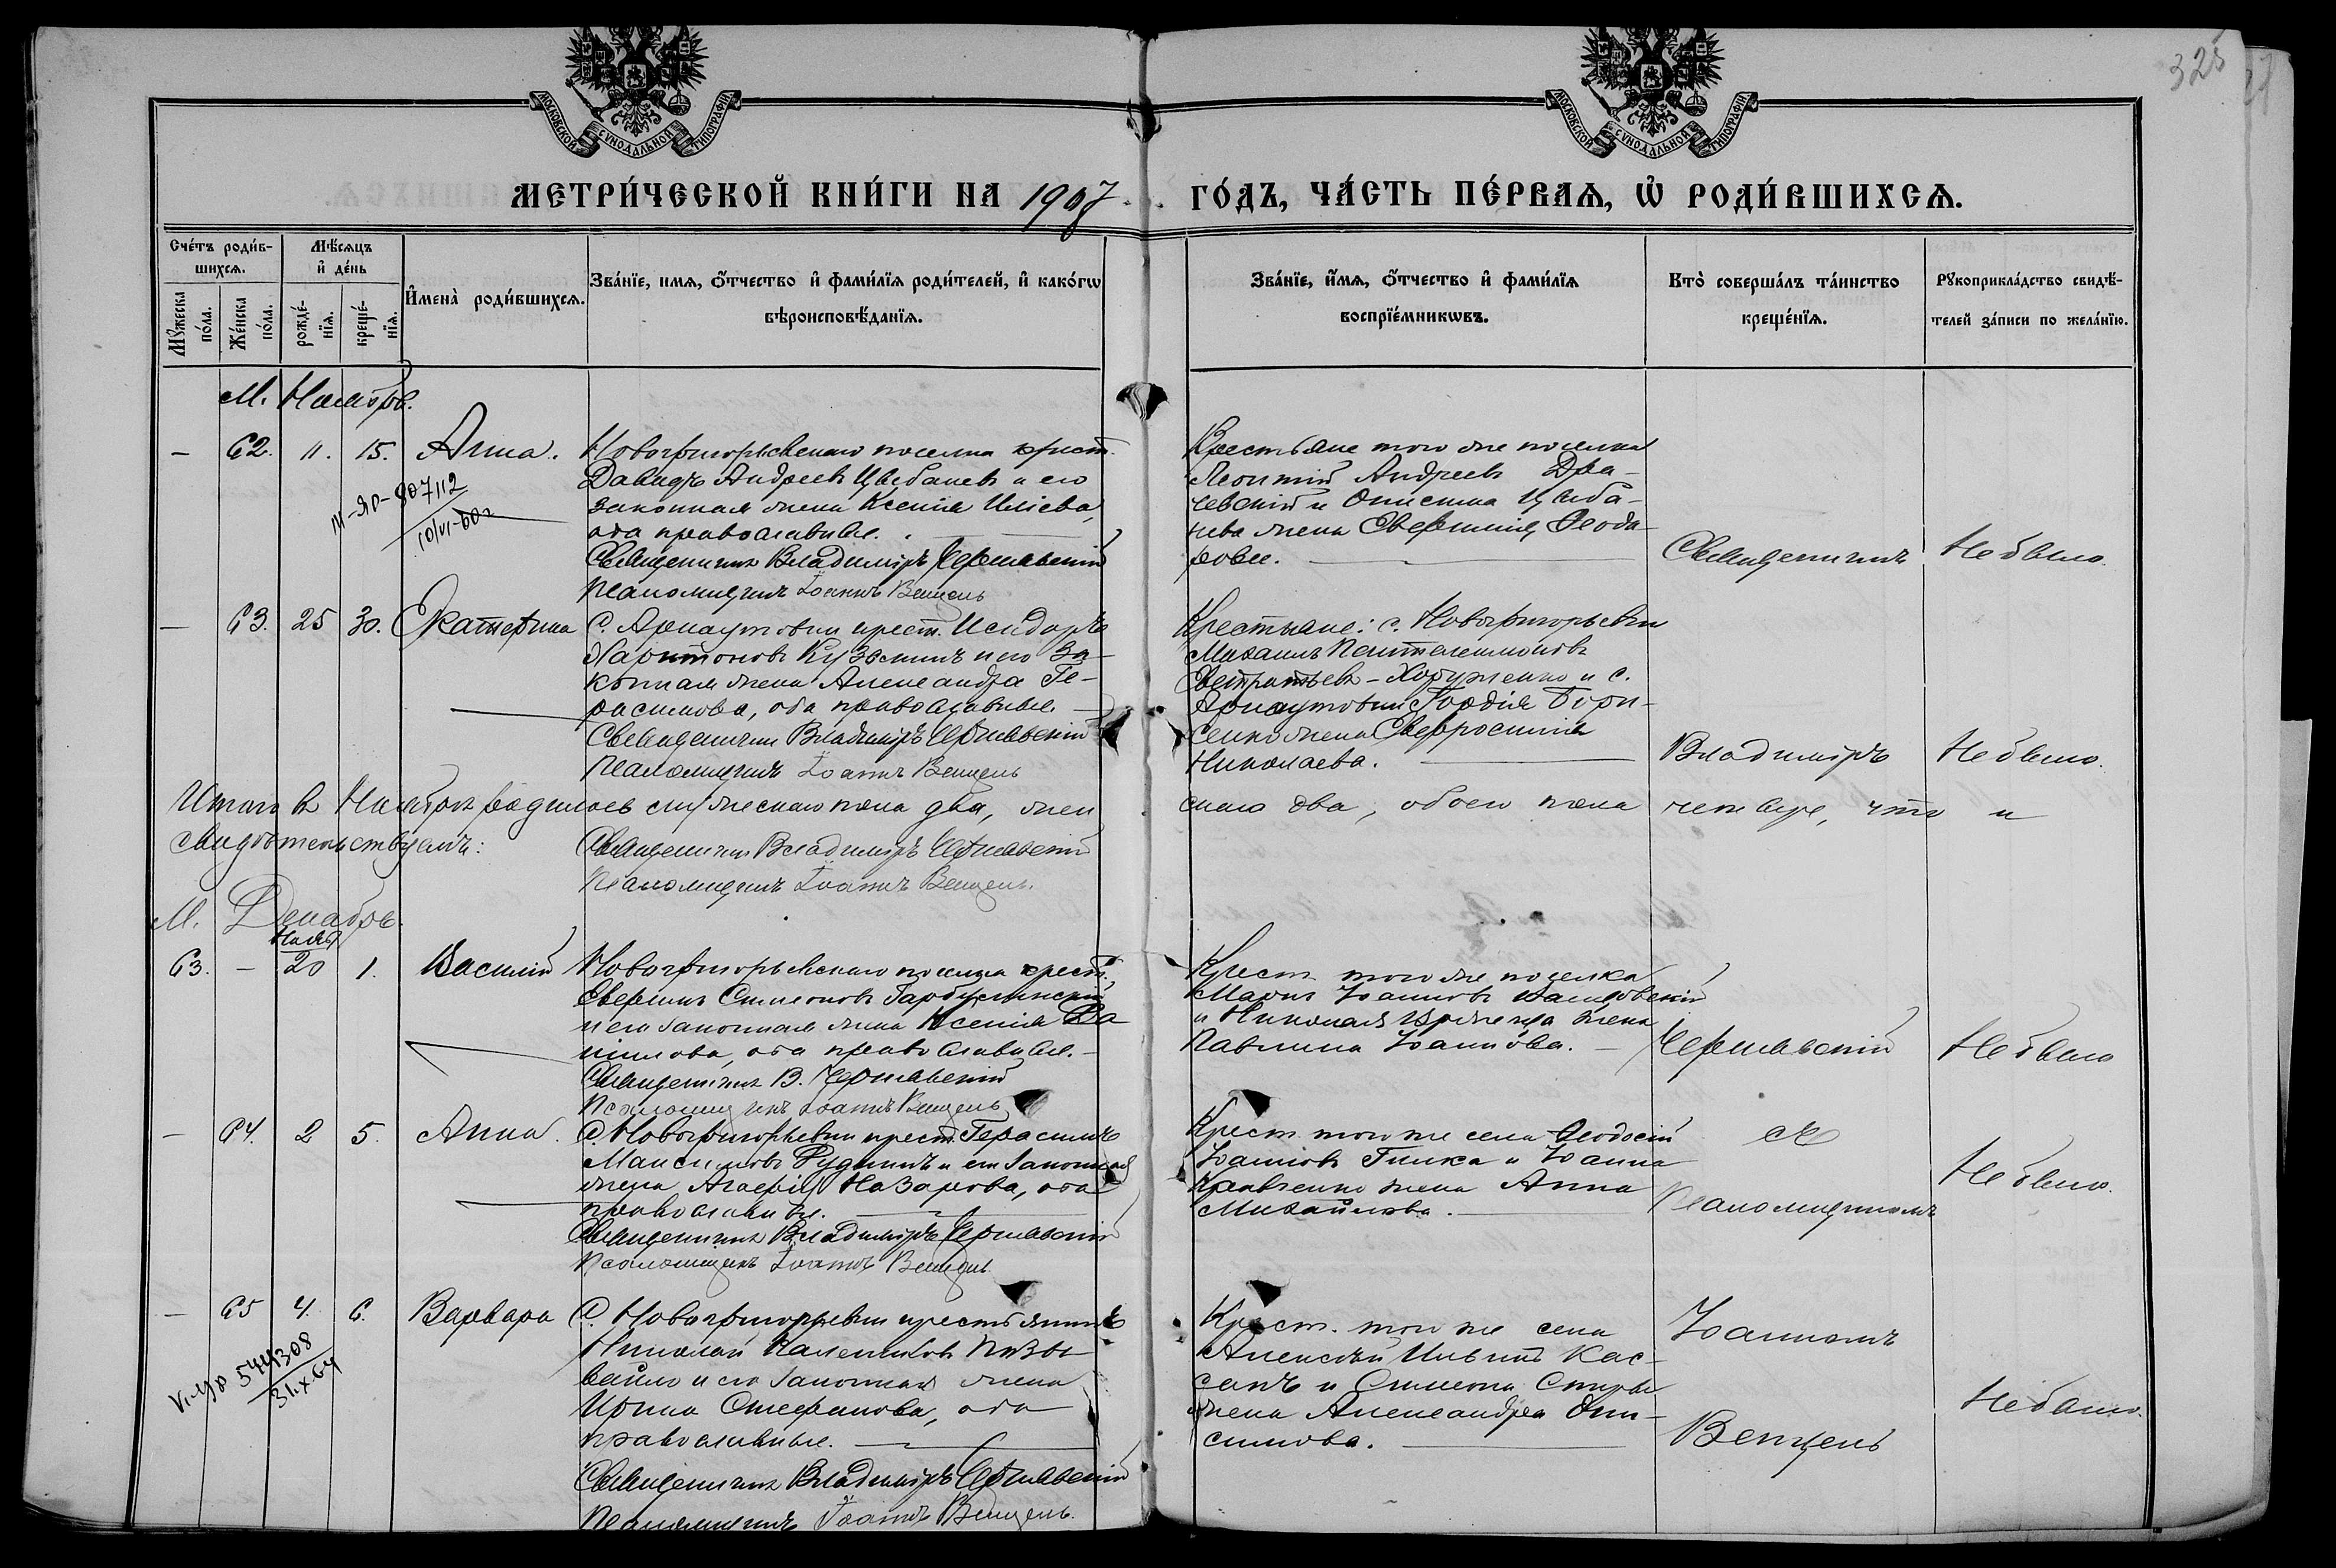 325
МОСКОВСКОЙ СѴНОДАЛЬНОЙ ТИПОГРАФІИ
МОСКОВСКОЙ СѴНОДАЛЬНОЙ ТИПОГРАФІИ
МЕТРИ́ЧЕСКОЙ КНИ́ГИ НА 1907 ГО́ДЪ, ЧА́СТЬ ПЕ́РВАЯ, Ѡ҆ РОДИ́ВШИХСѦ.
Сче́тъ роди́в-
шихсѧ.
Мꙋ́жеска по́ла.
Же́нска по́ла.
Мѣ́сѧцъ
и҆ де́нь
рожде́-
нїѧ.
креще́-
нїѧ.
И҆мена̀ роди́вшихсѧ.
Зва́нїе, имѧ, ѻ҆́тчество и҆ фами́лїѧ роди́телей, и҆ како́гѡ
вѣроисповѣ́данїѧ.
Зва́нїе, и҆́мѧ, ѻ҆́тчество и҆ фами́лїѧ
воспрїе́мникѡвъ.
Кто̀ соверша́лъ та́инство
креще́нїѧ.
Рꙋкоприкла́дство свидѣ́-
телей за́писи по жела́нїю.
М. Ноябрь.
— 62. 11. 15. Анна.
Новогригорьевскаго поселка крест.
Давидъ Андреевъ Цыбаневъ и его
законная жена Ксенія Иліева,
оба православные.
Священникъ Владиміръ Чернявскій
Псаломщикъ Іоаннъ Венцель
Крестьяне того же поселка
Леонтій Андреевъ Дра-
чевскій и Онисима Цыба-
нева жена Евфимія Феодо-
рова.
Священникъ
Не было.
10/VI-60г
— 63. 25 30. Екатерина
С. Арнаутовки крест. Исидоръ
Харитоновъ Кузьминъ и его За-
конная жена Александра Ге-
расимова, оба православные.
Священникъ Владиміръ Чернявскій
Псаломщикъ Іоаннъ Венцель
Крестьяне: с. Новогригорьевки
Михаилъ Пантелеимоновъ
Евстратьевъ - Хоруженко и с.
Арнаутовки Гордія Бори-
сенко жена Евфросинія
Николаева.
Владиміръ
Не было.
Итого въ Ноябрѣ родилось мужескаго пола два, жен
скаго два, обоего пола четыре, что и
свидѣтельствуемъ:
Священникъ Владиміръ Чернявскій
Псаломщикъ Іоаннъ Венцель.
М. Декабрь.
Нояб
63. — 20 1. Василій
Новогригорьевскаго поселка крест.
Евфимъ Симеоновъ
и его законная жена Ксенія Да
ніилова, оба православные.
Священникъ В. Чернявскій
Псаломщикъ Іоаннъ Венцель
Крест. того же поселка
Іоанновъ
и Николая жена
Павлина Іоаннова.
Чернявскій
Не было
— 64. 2 5. Анна.
С. Новогригорьевки крест. Герасимъ
Максимовъ Рудникъ и его законная
жена Агафія Назарова, оба
православные.
Священникъ Владиміръ Чернявскій
Псаломщикъ Іоаннъ Венцель
Крест. того же села Феодосій
Іоанновъ Гинка и Іоанна
Кравченко жена Анна
Михайлова.
съ
Псаломщикомъ
Не было.
— 65 4. 6. Варвара
С. Новогригорьевки крестьянинъ
Николай Каленниковъ
и его законная жена
Ирина Стефанова, оба
православные.
Священникъ Владиміръ Чернявскій
Псаломщикъ Іоаннъ Венцель.
Крест. того же села
Алексѣй Ильинъ Кас-
сапъ и Симеона
жена Александра Они-
симова.
Іоанномъ
Венцель
Не было.
544308
31.X.64